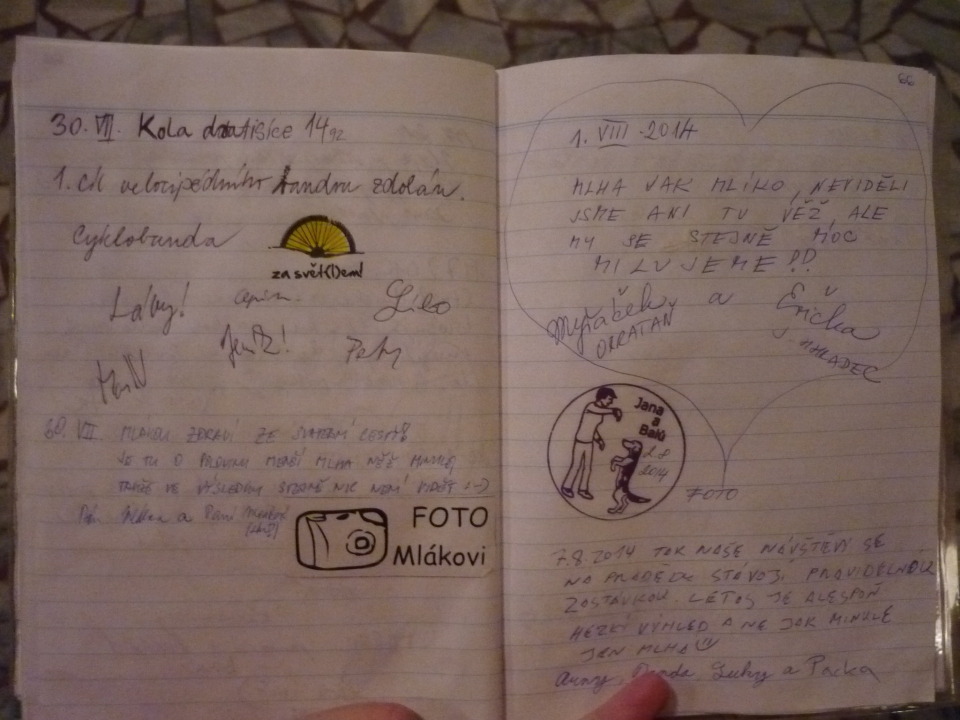 30. VII. Kola dratišice 1492
1. cíl velocipedního vandru zdolán.
Cyklobanda
za svět(l)em!
Láby!
JenB!
Petr
30. VII. MLÁKOVI ZDRAVÍ ZE SVATEBNÍ CESTY!
JE TU O POLOVINU MENŠÍ MLHA NEŽ MINULE,
TAKŽE VE VÝSLEDKU STEJNĚ NIC NENÍ VIDĚT :-)
Pan Mlák a Paní
FOTO
Mlákovi
66
1. VIII. 2014
MLHA JAK MLÍKO, NEVIDĚLI
JSME ANI TU VĚŽ, ALE
MY SE STEJNĚ MOC
MILUJEME!!
a Erička
J. HRADEC
Jana
a
Balú
2.8
2014
FOTO
7.8.2014 TAK NAŠE NÁVŠTĚVY SE
NA PRADĚDU STÁVAJÍ PRAVIDELNOU
ZASTÁVKOU. LETOS JE ALESPOŇ
HEZKÝ VÝHLED A NE JAK MINULE
JEN MLHA
a Packa